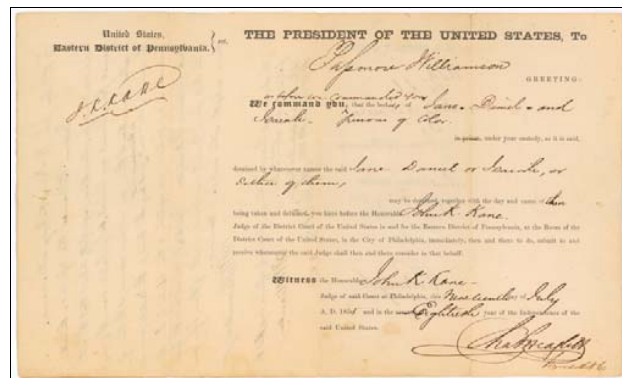 United States,
Eastern District of Pennsylvania. } ss.
THE PRESIDENT OF THE UNITED STATES, To
Passmore Williamson
GREETING:
J. K. KANE
as before we commanded you
We command you, that the bodies of Jane, Daniel and
Isaiah, Persons of Color.
in prison, under your custody, as it is said,
detained by whatsoever names the said Jane Daniel or Isaiah, or
either of them,
may be detained, together with the day and cause of their
being taken and detained, you have before the Honorable John K. Kane.
Judge of the District Court of the United States in and for the Eastern District of Pennsylvania, at the Room of the
District Court of the United States, in the City of Philadelphia, immediately, then and there to do, submit to and
receive whatsoever the said Judge shall then and there consider in that behalf.
Witness the Honorable John K Kane
Judge of said Court at Philadelphia, this Nineteenth of July
A. D. 185 and in the Eightieth year of the Independence of the
said United States.